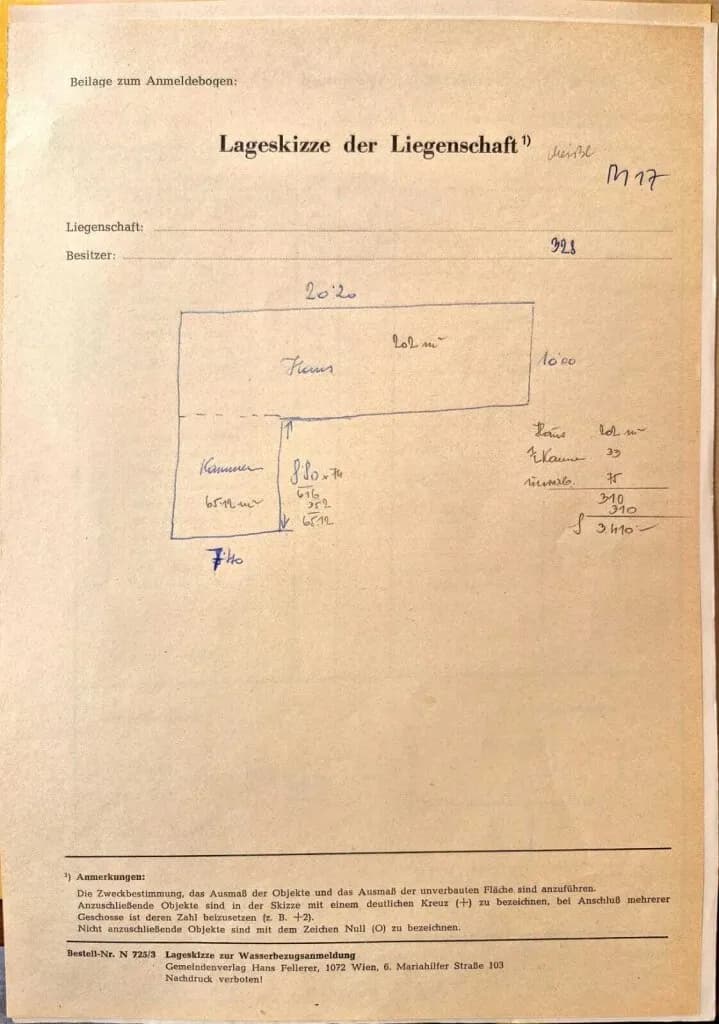 Beilage zum Anmeldebogen:
Lageskizze der Liegenschaft¹)
M 17
Liegenschaft:
Besitzer: 328
20·20
202 m²
Haus
10·00
Kammer
8·80 x 74
65·12 m²
616
352
65·12
7·40
Haus 202 m²
½ Kammer 33
75
310
310
3.410·–
¹) Anmerkungen:
Die Zweckbestimmung, das Ausmaß der Objekte und das Ausmaß der unverbauten Fläche sind anzuführen.
Anzuschließende Objekte sind in der Skizze mit einem deutlichen Kreuz (+) zu bezeichnen, bei Anschluß mehrerer
Geschosse ist deren Zahl beizusetzen (z. B. +2).
Nicht anzuschließende Objekte sind mit dem Zeichen Null (O) zu bezeichnen.
Bestell-Nr. N 725/3 Lageskizze zur Wasserbezugsanmeldung
Gemeindenverlag Hans Fellerer, 1072 Wien, 6. Mariahilfer Straße 103
Nachdruck verboten!